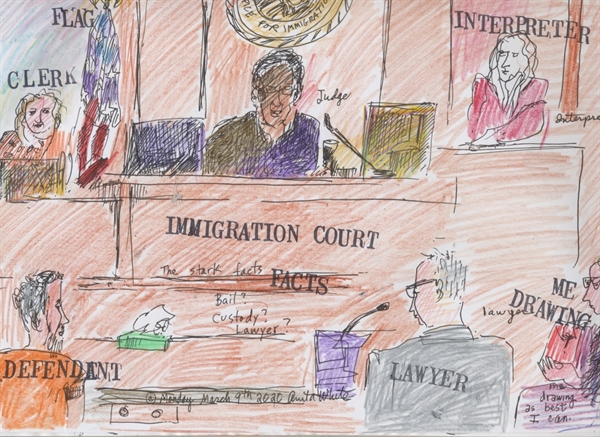 FLAG
CLERK
OFFICE FOR IMMIGRATION
INTERPRETER
Judge
IMMIGRATION COURT
The stark facts
FACTS
Bail?
Custody?
Lawyer?
ME
DRAWING
lawyer
DEFENDANT
LAWYER
© Monday March 9th 2020 Anita White
me
drawing
as best
I can.